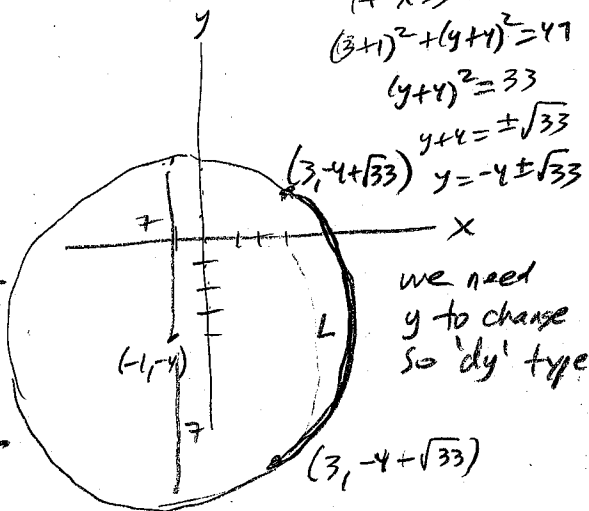 y
(3+1)²+(y+4)²=49
(y+4)²=33
y+4=±√33
(3,-4+√33) y=-4±√33
7
x
we need
y to change
so 'dy' type
L
(-1,-4)
7
(3,-4-√33)